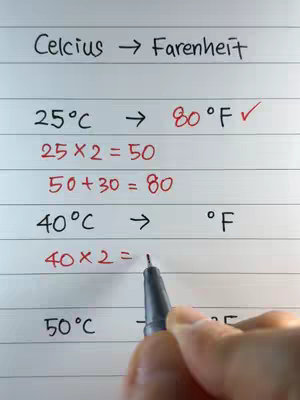 Celcius → Farenheit
25°C → 80°F ✓
25 × 2 = 50
50 + 30 = 80
40°C → °F
40 × 2 =
50°C °F